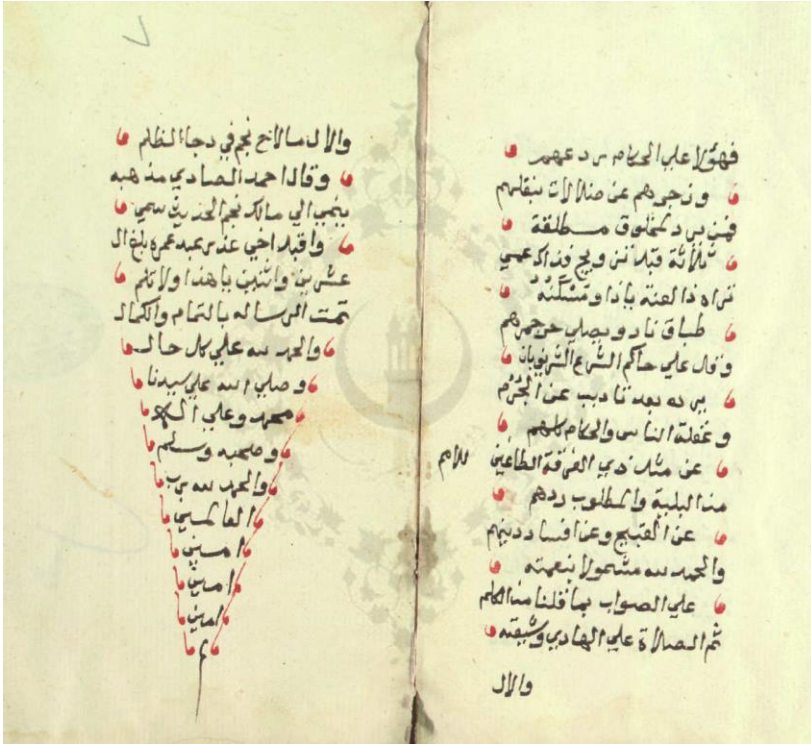 فهؤلا علي الحكام ردعهم
وزجرهم عن ضلالات بنقلهم
فمن يرد لمخلوق مطلقة
ثلاثة قبل تزويج فذاك عمي
تراه ذا لعنة باذا ومسكنه
طباق نار ويصلي حر جمرهم
وقال علي حاكم الشرع الشريف بان
يرده بعد تاديب عن الجرم
وغفلة الناس والحكام كلهم
عن مثل ذي الفرقة الطاغين للامم
من البلية والمطلوب ردهم
عن القبيح وعن افساد دينهم
والحمد لله مشمولا بنعمته
علي الصواب بما قلنا من الكلم
ثم الصلاة علي الهادي وشيعته
والال
والال مالاح نجم في دجا الظلم
وقال احمد الصادي مذهبه
ينمي الي مالك نجم الحديث سمي
واقبل اخي عذر عبد عمره بلغ ال
عشرين واثنين ياهذا ولا تلم
تمت الرساله بالتمام والكمال
والحمد لله علي كل حال
وصلي الله علي سيدنا
محمد وعلي اله
وصحبه وسلم
والحمد لله رب
العالمين
امين
امين
امين
م